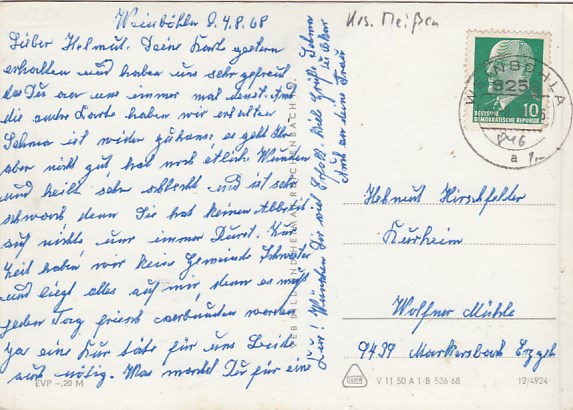 Weinböhla d. 4.8.68
Krs. Meißen
Lieber Helmut. Deine Karte gestern
erhalten und haben uns sehr gefreut
das Du an uns immer mal denst. Auch
die andre Karte haben wir erhalten
Selma ist wider zuhause es geht Ihr
aber nicht gut, hat noch etliche Wunden
und heilt sehr schlecht und ist sehr
schwach denn Sie hat keinen Abbetit
auf nichts nur immer Durst. Zur
Zeit haben wir keine Gemeinde Schwester
und liegt alles auf mir, denn es muß
jeden Tag frisch verbunden werden
Ja eine Kur täte für uns beide
auch nötig. Was machst Du für eine
Kur! Wünschen Dir viel Erfolg. Viel Grüße Selma
Auch an deine Frau
VEB BILD UND HEIMAT REICHENBACH I. V.
DEUTSCHE
DEMOKRATISCHE REPUBLIK
10
WEINBÖHLA
825
a
Helmut Hirschfelder
Kurheim
Wolfner Mühle
9439 Markersbach Erzgeb
EVP -,20 M
V 11 50 A 1-B 536/68
12/4924